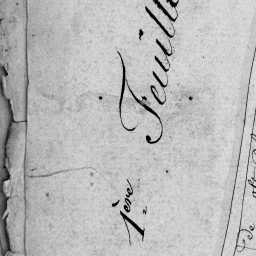 1ère Feuille
de